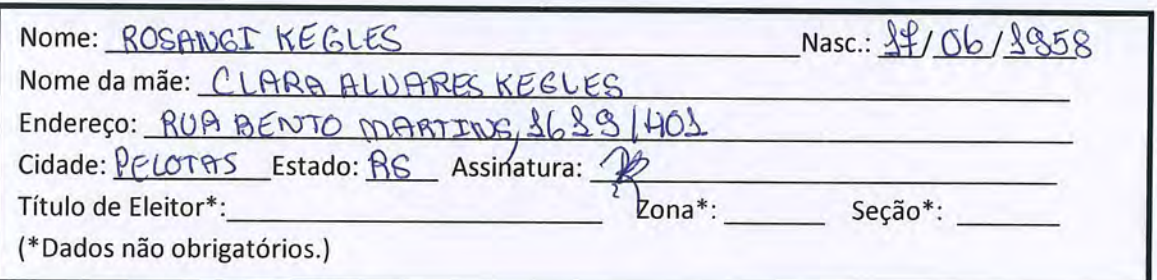 Nome: ROSANGI KEGLES Nasc.: 17/06/1958
Nome da mãe: CLARA ALVARES KEGLES
Endereço: RUA BENTO MARTINS, 1619/401
Cidade: PELOTAS Estado: RS Assinatura:
Título de Eleitor*: Zona*: Seção*:
(*Dados não obrigatórios.)